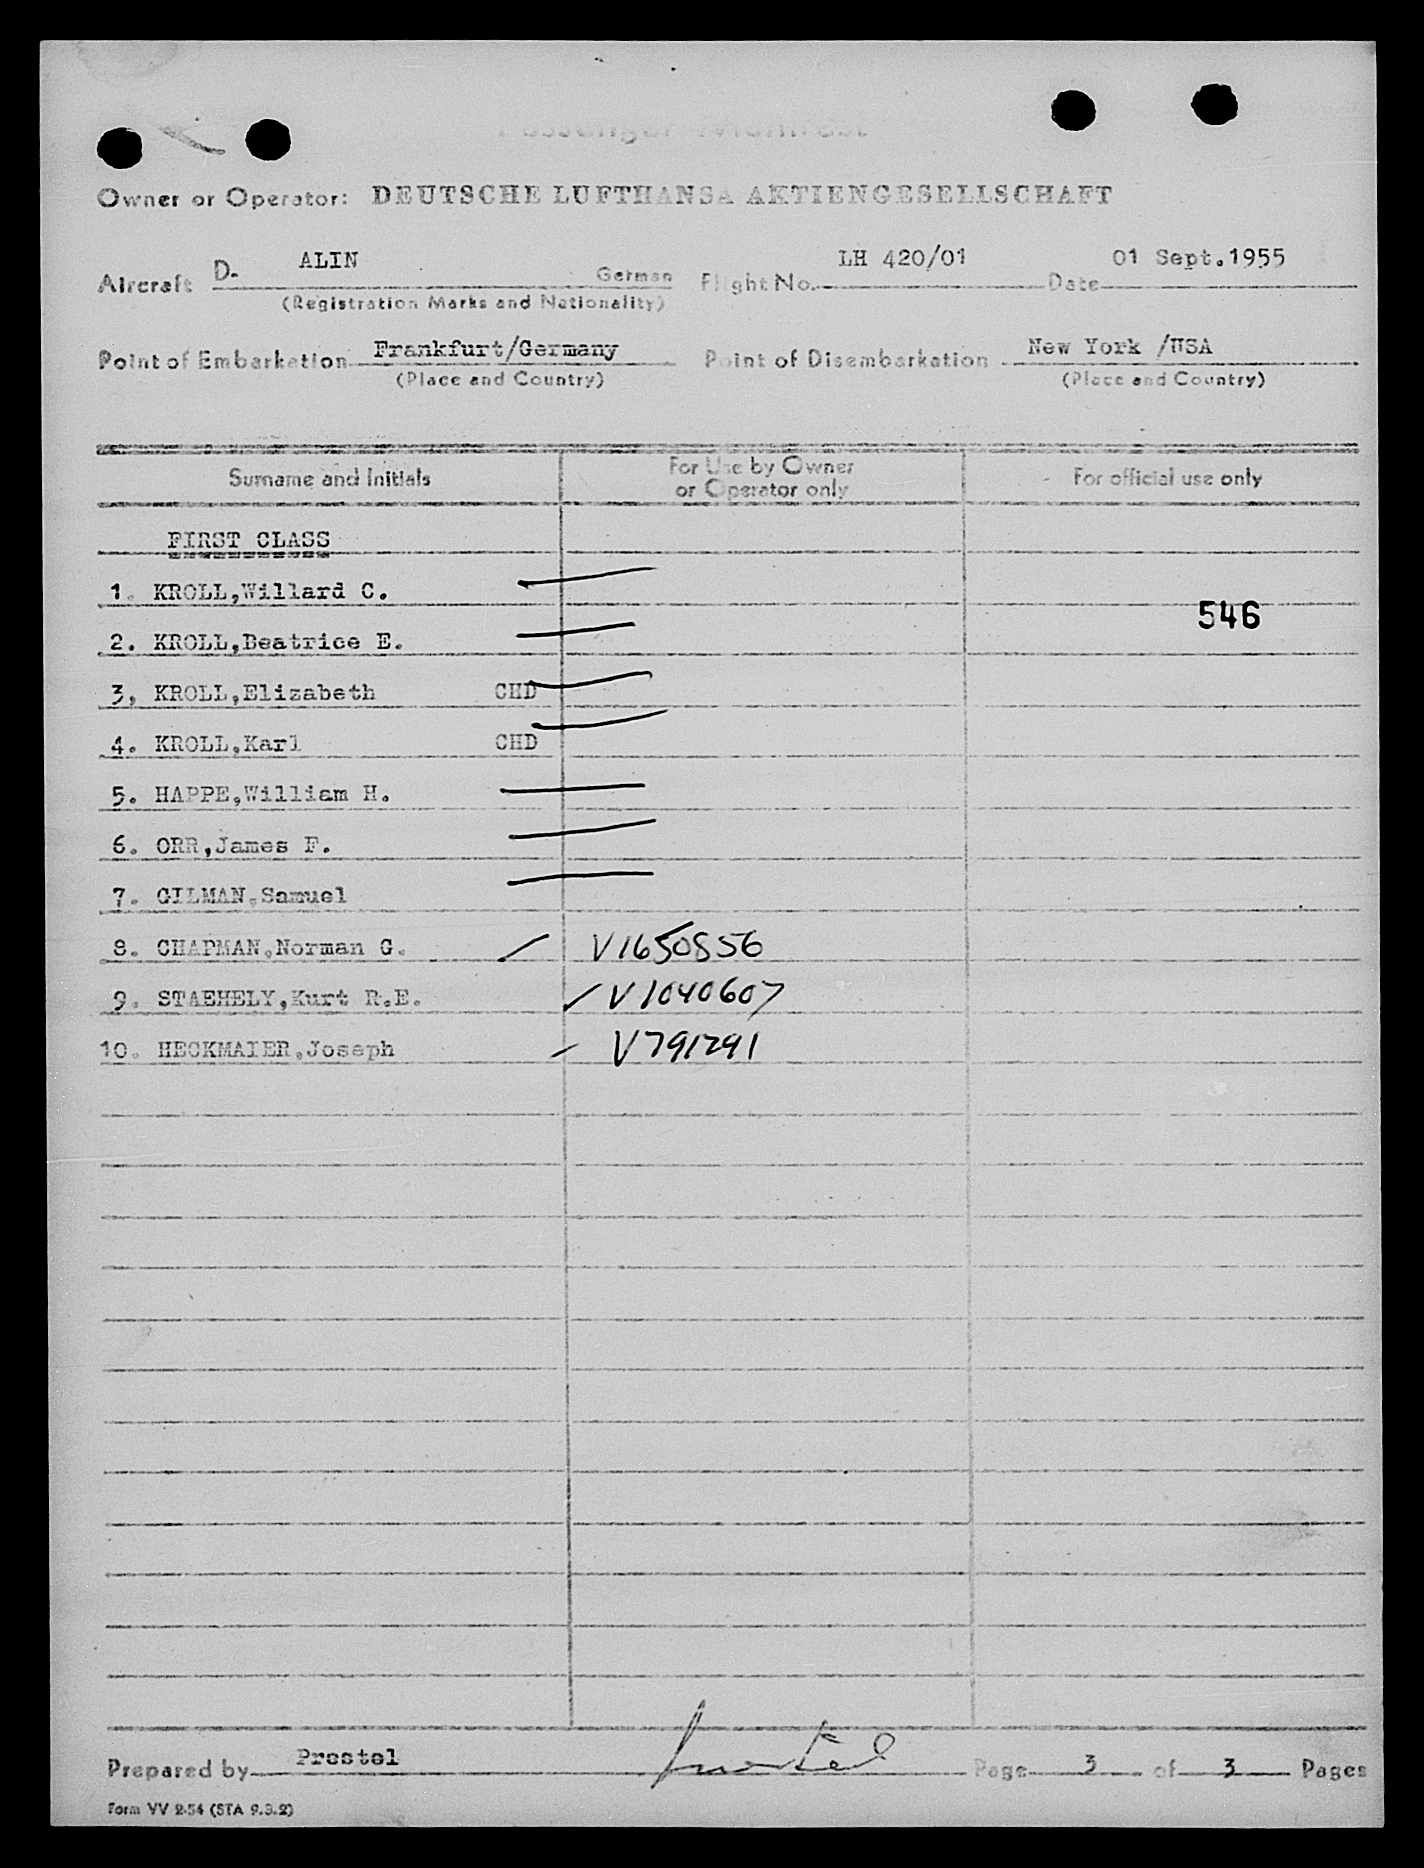 Passenger Manifest
Owner or Operator: DEUTSCHE LUFTHANSA AKTIENGESELLSCHAFT
Aircraft D- ALIN German Flight No. LH 420/01 Date 01 Sept.1955
(Registration Marks and Nationality)
Point of Embarkation Frankfurt/Germany Point of Disembarkation New York /USA
(Place and Country) (Place and Country)
Surname and Initials For Use by Owner or Operator only For official use only
FIRST CLASS
1. KROLL,Willard C.
546
2. KROLL,Beatrice E.
3, KROLL,Elizabeth CHD
4. KROLL,Karl CHD
5. HAPPE,William H.
6. ORR,James F.
7. GILMAN,Samuel
8. CHAPMAN,Norman G. V1650856
9. STAEHELY,Kurt R.E. V1040607
10. HECKMAIER,Joseph V791291
Prepared by Prestel Prestel Page 3 of 3 Pages
Form VV 2-54 (STA 9.3.2)